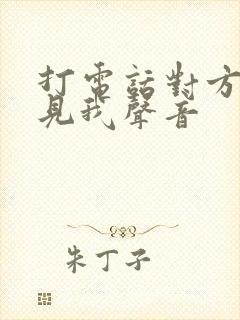 打電話對方
見我聲音
朱丁子